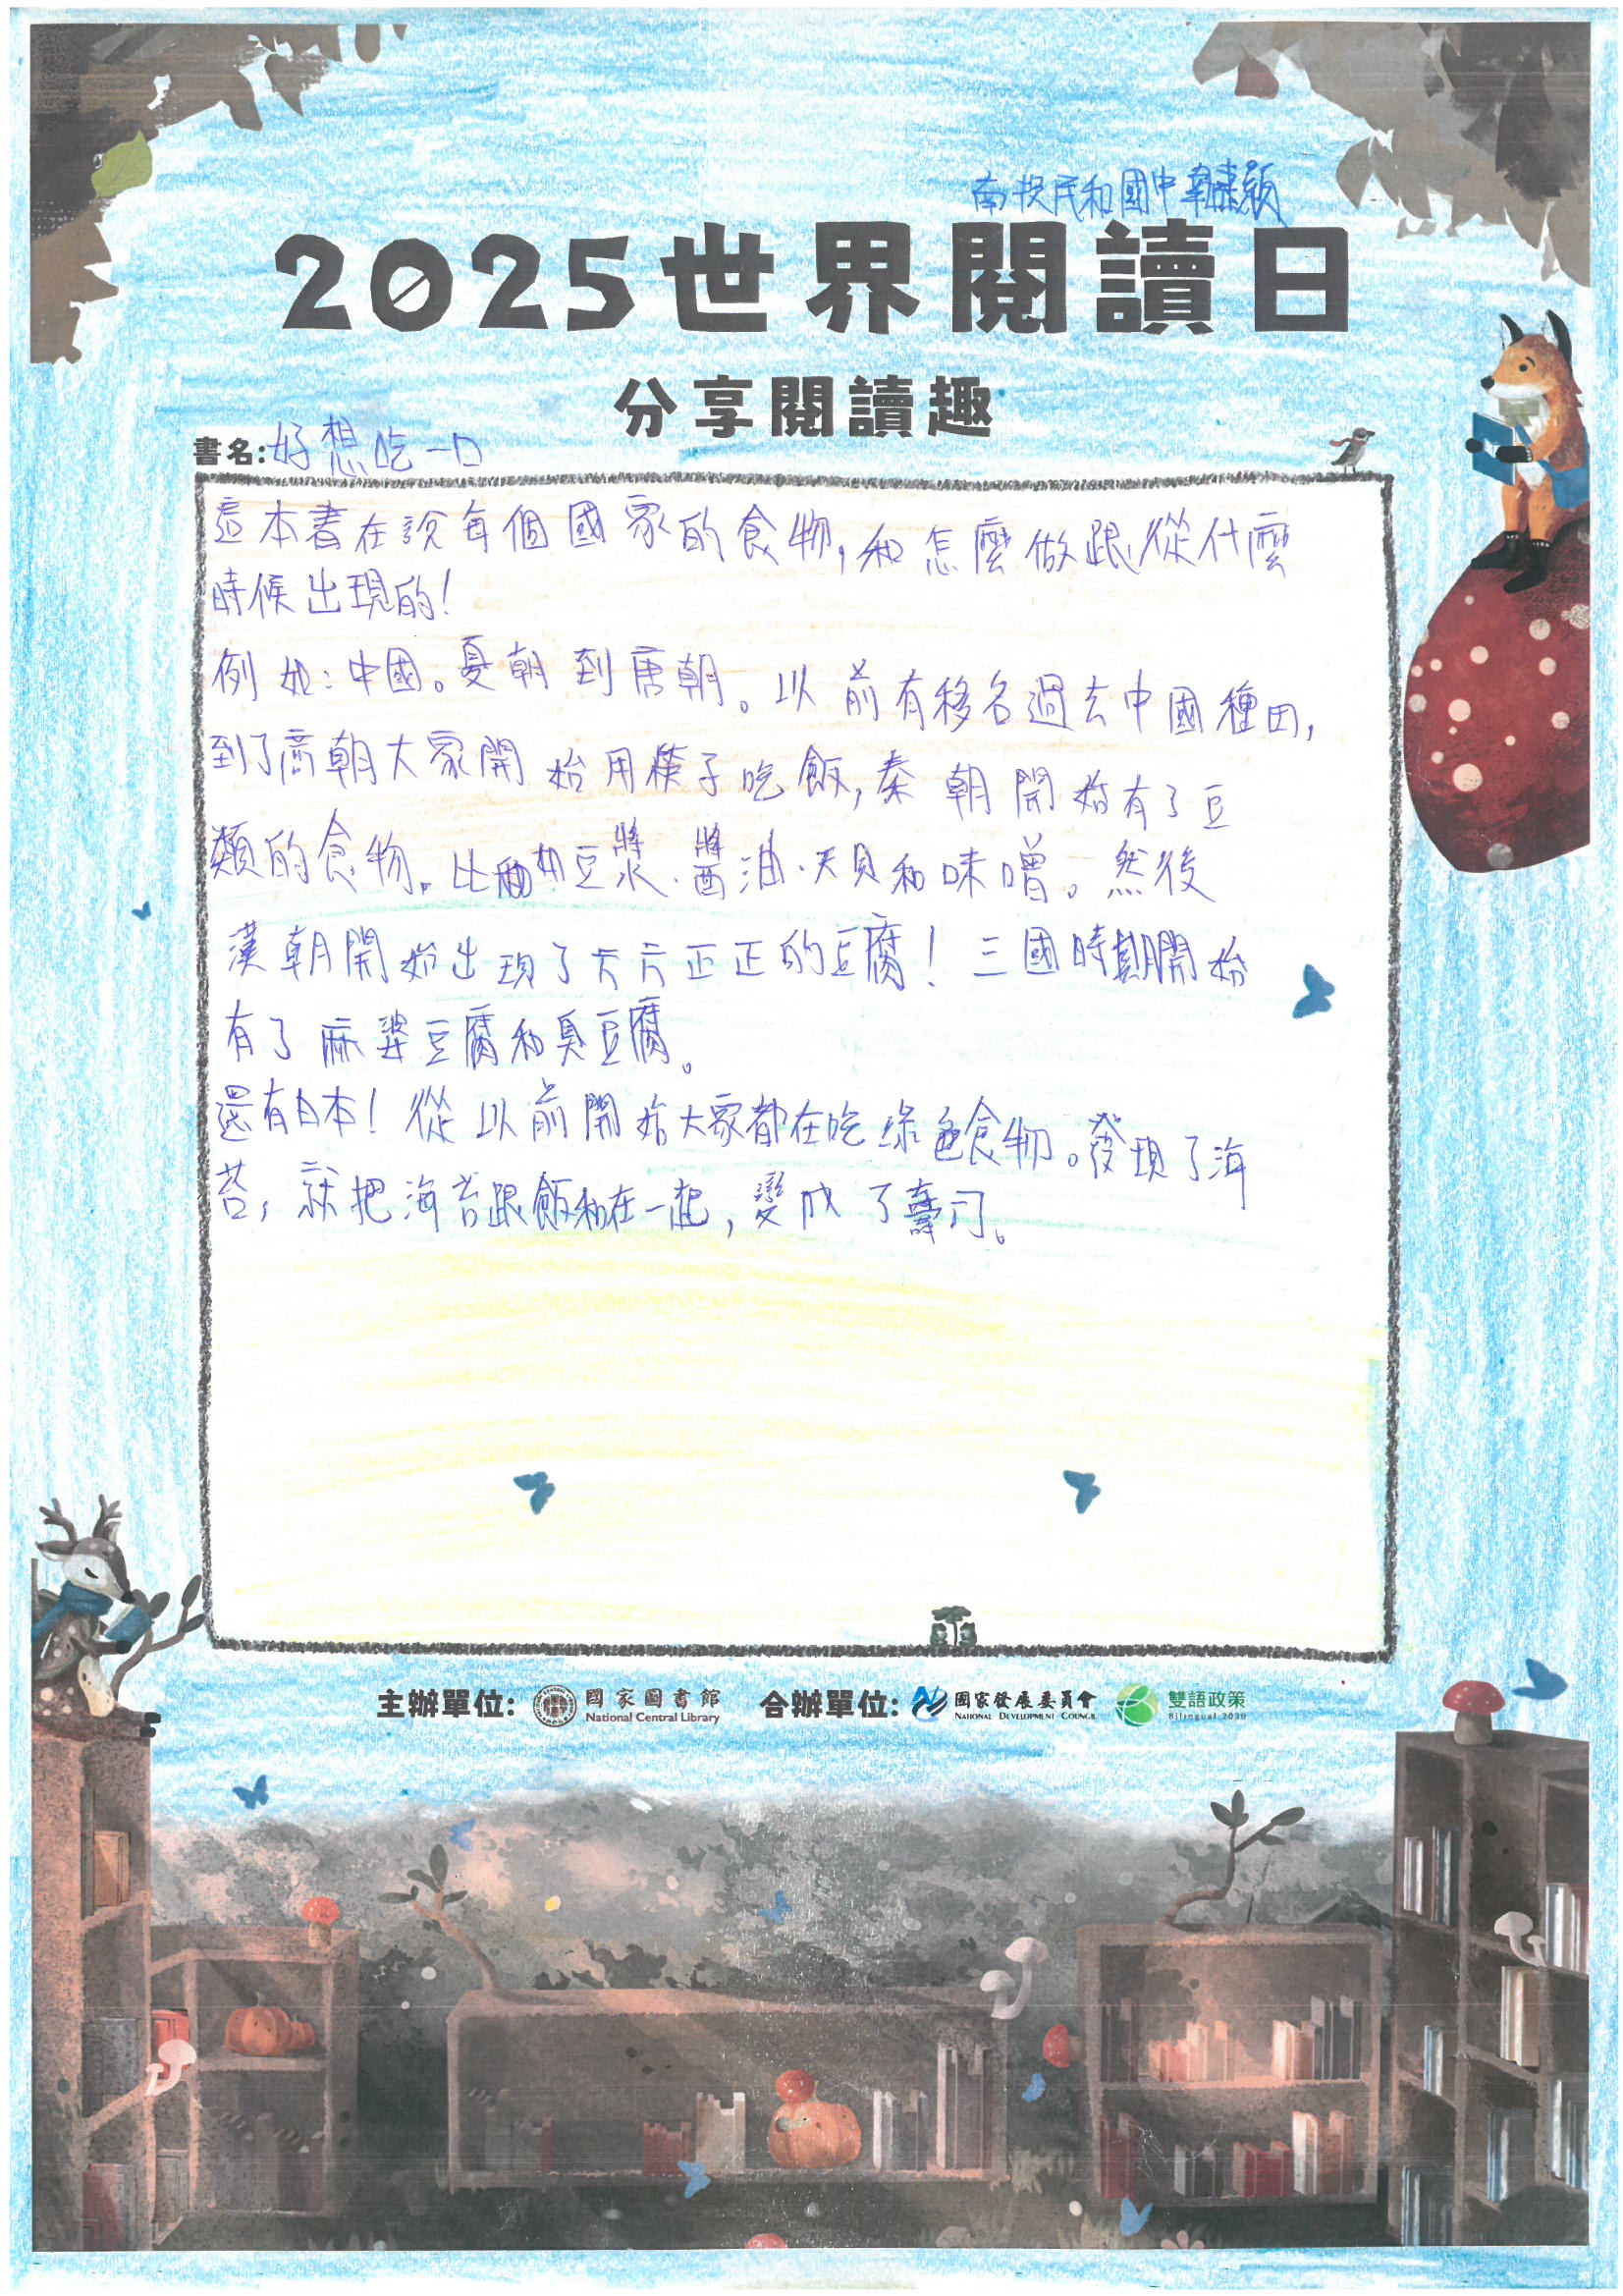 南投民和國中
2025世界閱讀日
分享閱讀趣
書名:好想吃一口
這本書在說每個國家的食物,和怎麼做跟從什麼
時候出現的!
例如:中國。夏朝到唐朝。以前有移名過去中國種田,
到了商朝大家開始用筷子吃飯,秦朝開始有了豆
類的食物。比如豆漿、醬油、天貝和味噌。然後
漢朝開始出現了方方正正的豆腐!三國時期開始
有了麻婆豆腐和臭豆腐。
還有日本!從以前開始大家都在吃綠色食物。發現了海
苔,就把海苔跟飯和在一起,變成了壽司。
主辦單位: 國家圖書館 National Central Library 合辦單位: 國家發展委員會 National Development Council 雙語政策 Bilingual 2030